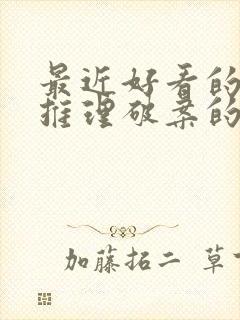 最近好看的
推理破案的
加藤拓二 草